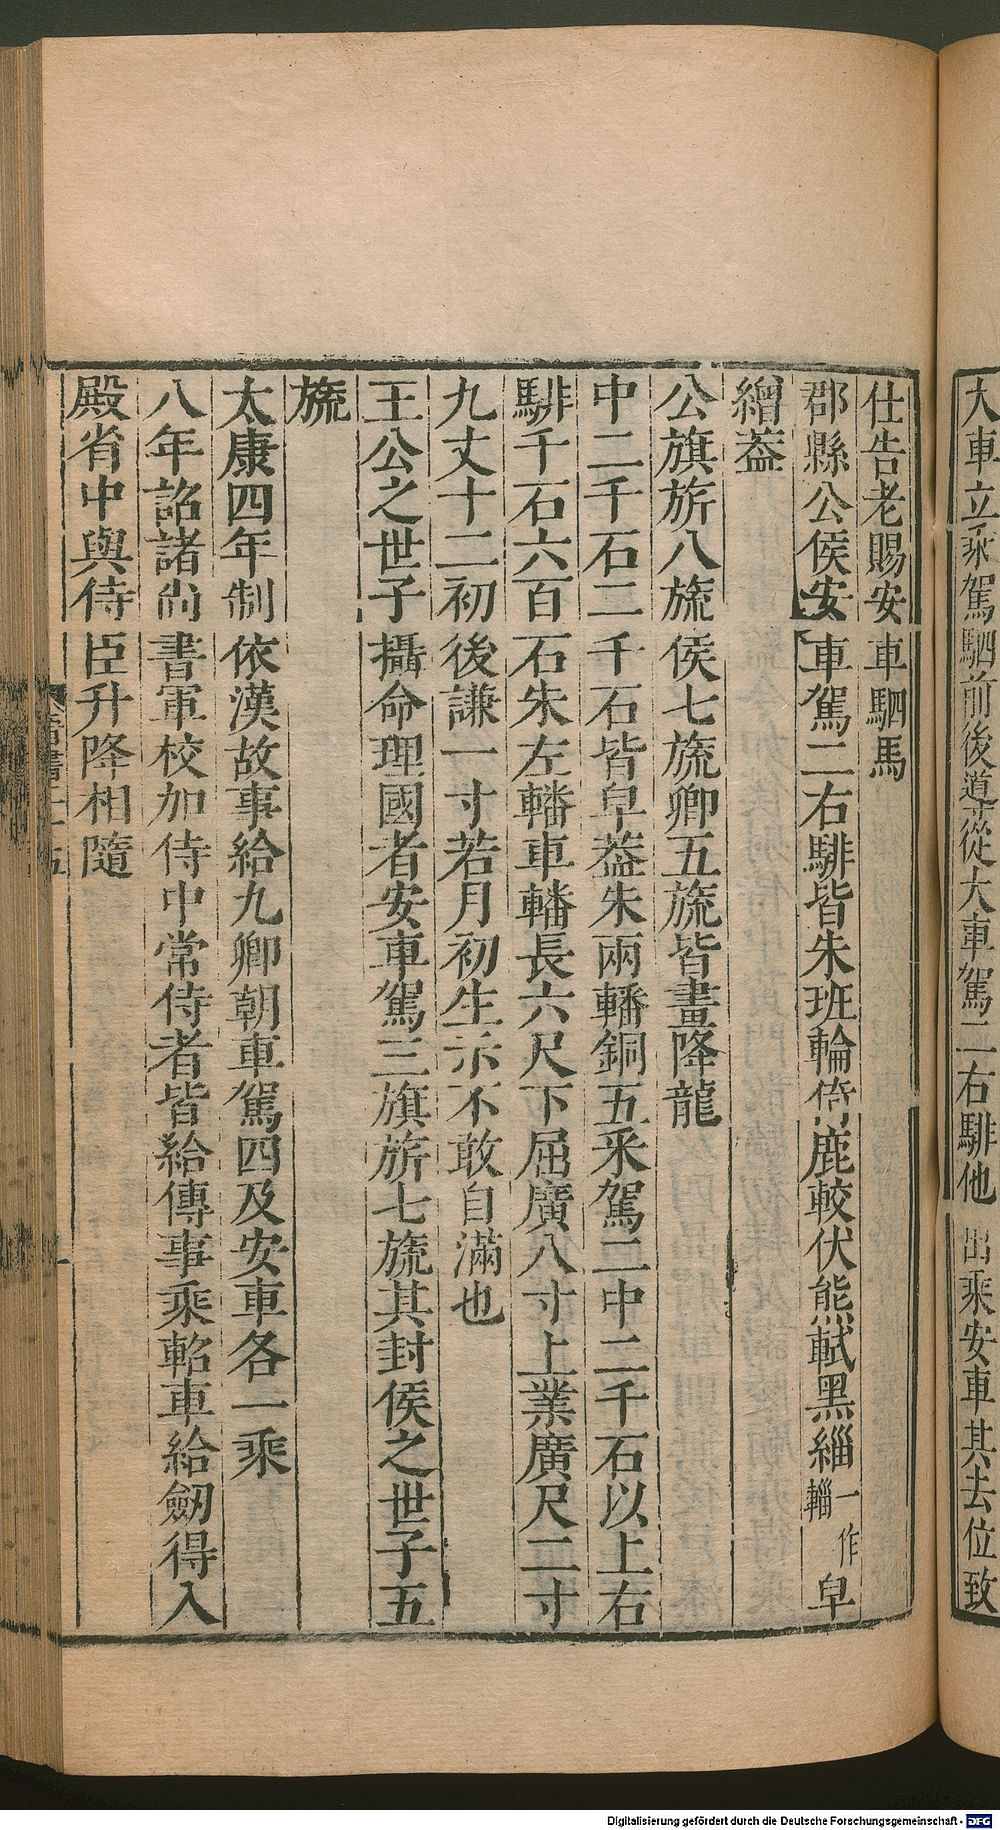 大車立乘駕駟前後導從大車駕二右騑他出乘安車其去位致
仕告老賜安車駟馬
郡縣公侯安車駕二右騑皆朱班輪倚鹿較伏熊軾黑緇一作輜皁
繒葢
公旗旂八旒侯七旒卿五旒皆畫降龍
中二千石二千石皆皁葢朱兩轓銅五采駕二中二千石以上右
騑千石六百石朱左轓車轓長六尺下屈廣八寸上業廣尺二寸
九丈十二初後謙一寸若月初生示不敢自滿也
王公之世子攝命理國者安車駕三旗旂七旒其封侯之世子五
旒
太康四年制依漢故事給九卿朝車駕四及安車各一乘
八年詔諸尚書軍校加侍中常侍者皆給傳事乘軺車給劒得入
殿省中與侍臣升降相隨
晉書二十五
Digitalisierung gefördert durch die Deutsche Forschungsgemeinschaft - DFG